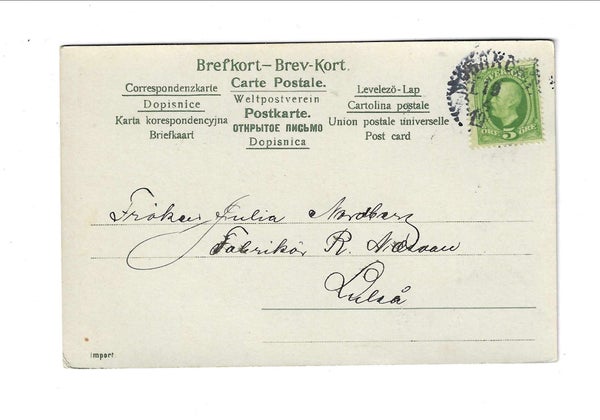 Brefkort–Brev-Kort.
Correspondenzkarte Carte Postale. Levelező-Lap
Dopisnice Weltpostverein Cartolina postale
Karta korespondencyjna Postkarte. Union postale universelle
Briefkaart ОТКРЫТОЕ ПИСЬМО Post card
Dopisnica
SVERIGE
ÖRE 5 ÖRE
Fröken Julia Nordberg
Fabrikör R.
Luleå
Import